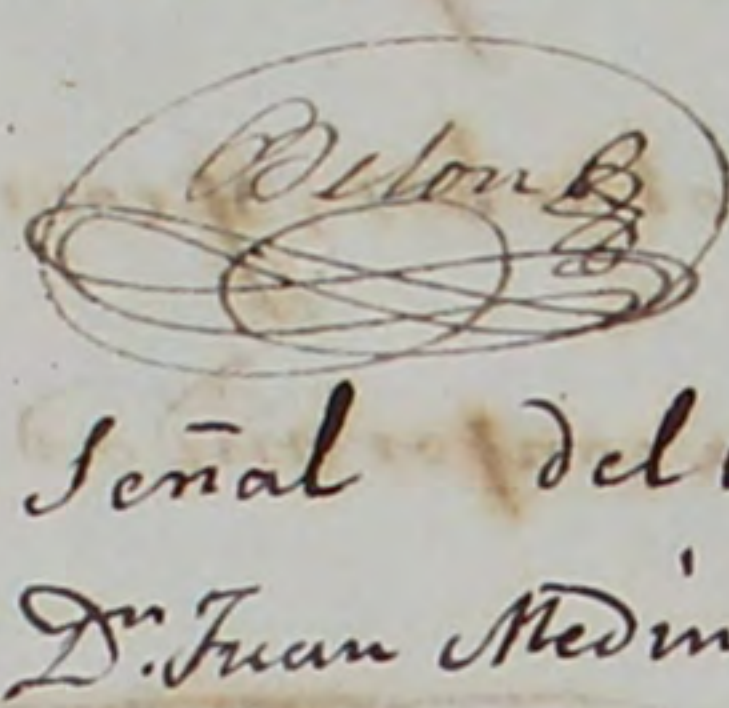 Belon
Señal del
Dn. Juan Medin